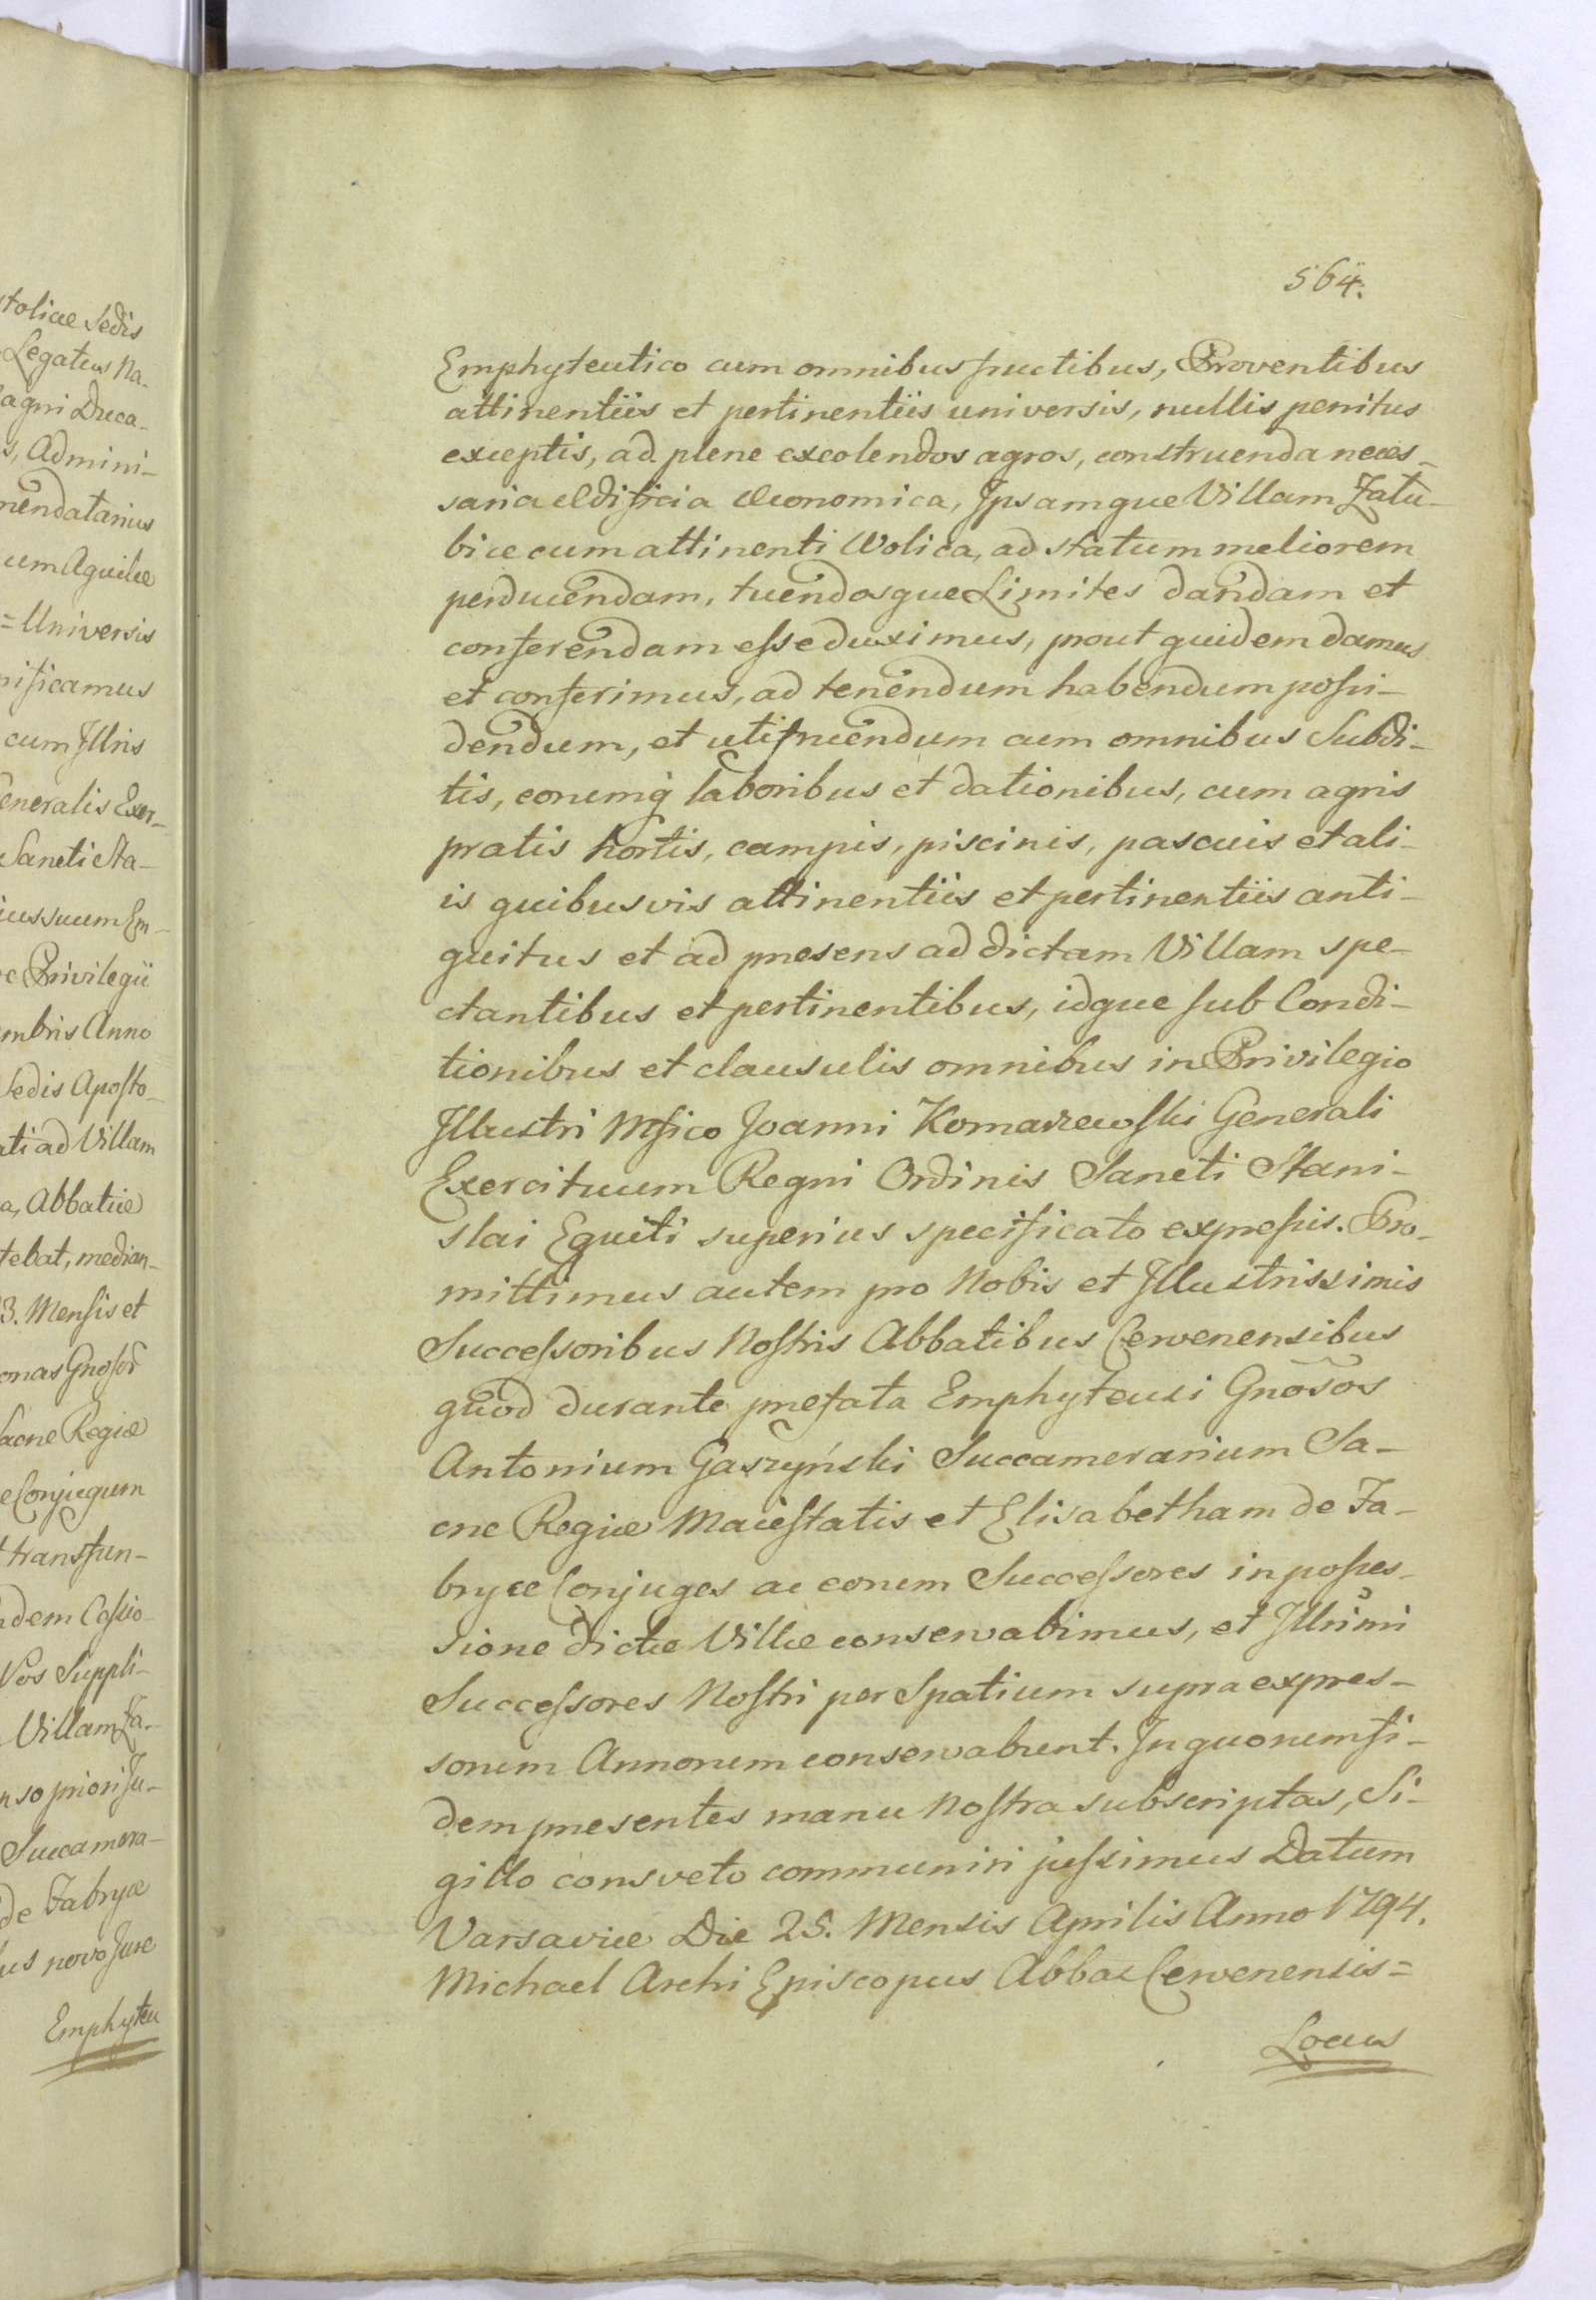 toliae Sedis
Legatus Na-
agni Duca-
s, Admini-
mendatarius
um Aquilae
= Universis
nificamus
cum Illris
Generalis Exer-
Sancti Sta-
ius suum Em-
Privilegii
mbris Anno
Sedis Aposto-
ti ad Villam
a, Abbatiae
tebat, median-
3. Mensis et
onas Gnosor
acrae Regiae
Conjugum
transfun-
dem Cessio-
Nos Suppli-
Villam Za-
nso priori Ju-
Succamera-
de Zabryce
us novo Jure
Emphyteu
564.
Emphyteutico cum omnibus fructibus, Proventibus
attinentiis et pertinentiis universis, nullis penitus
exceptis, ad plene excolendos agros, construenda neces-
saria aedificia oeconomica, Ipsamque Villam Zatu-
bice cum attinenti Wolica, ad statum meliorem
perducendam, tuendosque Limites dandam et
conferendam esse duximus, prout quidem damus
et conferimus, ad tenendum habendum possi-
dendum, et utifruendum cum omnibus Subdi-
tis, eorumq laboribus et dationibus, cum agris
pratis hortis, campis, piscinis, pascuis et ali-
is quibusvis attinentiis et pertinentiis anti-
quitus et ad praesens ad dictam Villam spe-
ctantibus et pertinentibus, idque sub Condi-
tionibus et clausulis omnibus in Privilegio
Illustri Mfico Joanni Komarzewski Generali
Exercituum Regni Ordinis Sancti Stani-
slai Equiti superius specificato expressis. Pro-
mittimus autem pro Nobis et Illustrissimis
Successoribus Nostris Abbatibus Cervenensibus
quod durante praefata Emphyteusi Gnosos
Antonium Gaszyński Succamerarium Sa-
crae Regiae Maiestatis et Elisabetham de Za-
bryce Conjuges ac eorum Successores in posses-
sione dictae Villae conservabimus, et Illrimi
Successores Nostri per Spatium supra expres-
sorum Annorum conservabunt. In quorum fi-
dem praesentes manu Nostra subscriptas, Si-
gillo consveto communiri jussimus Datum
Varsaviae Die 25. Mensis Aprilis Anno 1794.
Michael Archi Episcopus Abbas Cervenensis=
Locus